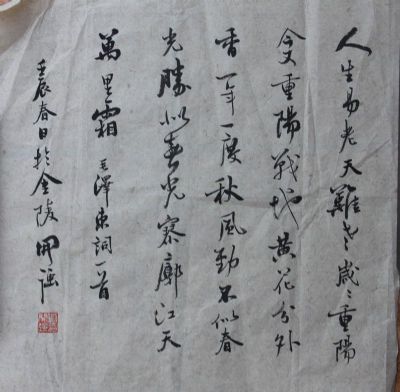 人生易老天難老歲々重陽
今又重陽戰地黃花分外
香一年一度秋風勁不似春
光勝似春光寥廓江天
萬里霜 毛澤東詞一首
壬辰春日於金陵